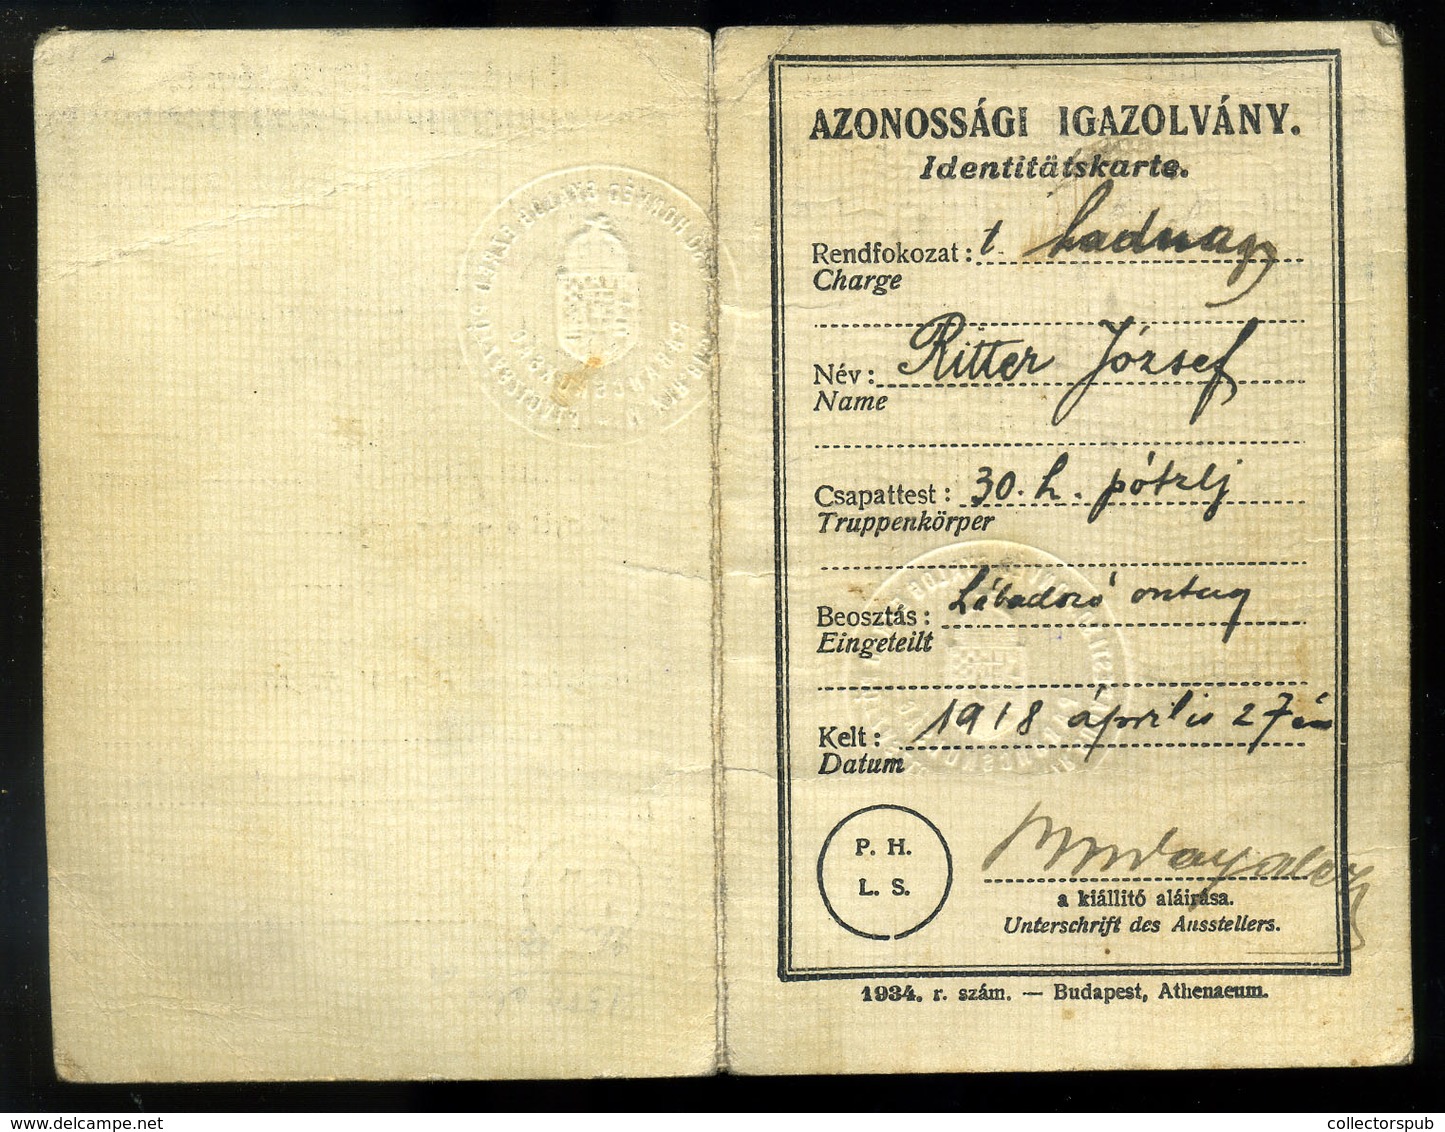 AZONOSSÁGI IGAZOLVÁNY.
Identitätskarte.
Rendfokozat: t. hadnagy
Charge
Név: Ritter József
Name
Csapattest: 30. h. pótzlj
Truppenkörper
Beosztás: Lábadozó
Eingeteilt
Kelt: 1918 április 27én
Datum
P. H.
L. S.
a kiállító aláirása.
Unterschrift des Ausstellers.
1934. r. szám. — Budapest, Athenaeum.
collectorspub